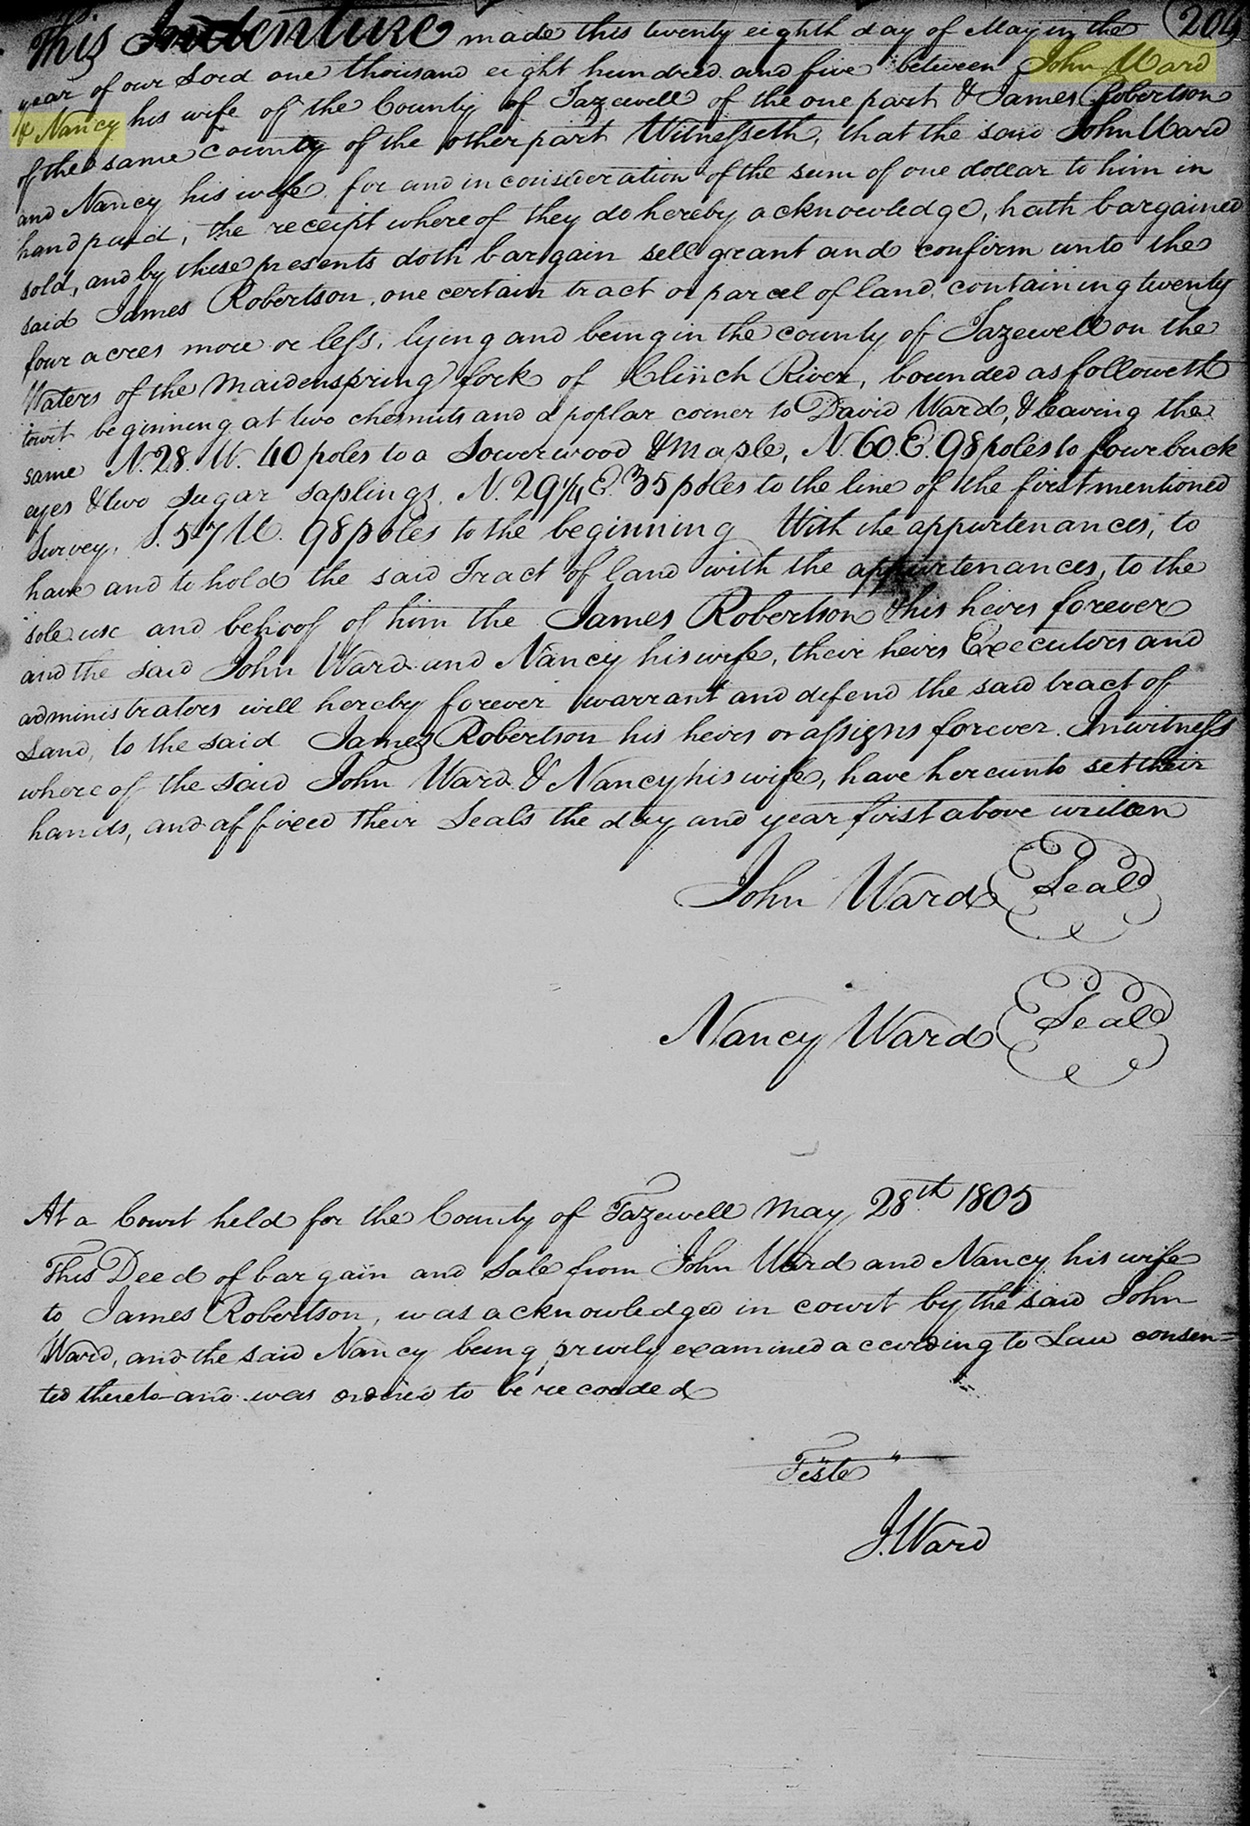 204
This Indenture made this twenty eighth day of May in the
year of our Lord one thousand eight hundred and five between John Ward
& Nancy his wife of the County of Tazewell of the one part & James Robertson
of the same county of the other part Witnesseth, that the said John Ward
and Nancy his wife for and in consideration of the sum of one dollar to him in
hand paid, the receipt where of they do hereby acknowledge, hath bargained
sold, and by these presents doth bargain sell grant and confirm unto the
said James Robertson, one certain tract or parcel of land containing twenty
four acres more or less, lying and being in the county of Tazewell on the
Waters of the Maidenspring fork of Clinch River, bounded as followeth
towit beginning at two chesnuts and a poplar corner to David Ward, & leaving the
same N. 28. W. 40 poles to a Sowerwood & Maple, N. 60. E. 98 poles to four buck
eyes & two sugar saplings, N. 29¼ E. 35 poles to the line of the first mentioned
Survey, S. 57 W. 98 poles to the beginning With the appurtenances, to
have and to hold the said Tract of land with the appurtenances, to the
sole use and behoof of him the James Robertson & his heirs forever
and the said John Ward and Nancy his wife, their heirs Executors and
administrators will hereby forever warrant and defend the said tract of
Land, to the said James Robertson his heirs or assigns forever. In witness
where of the said John Ward & Nancy his wife, have hereunto set their
hands, and affixed their Seals the day and year first above written
John Ward Seal
Nancy Ward Seal
At a Court held for the County of Tazewell May 28th 1805
This Deed of bargain and Sale from John Ward and Nancy his wife
to James Robertson, was acknowledged in court by the said John
Ward, and the said Nancy being privily examined according to Law consen=
ted thereto and was ordered to be recorded
Teste
J. Ward